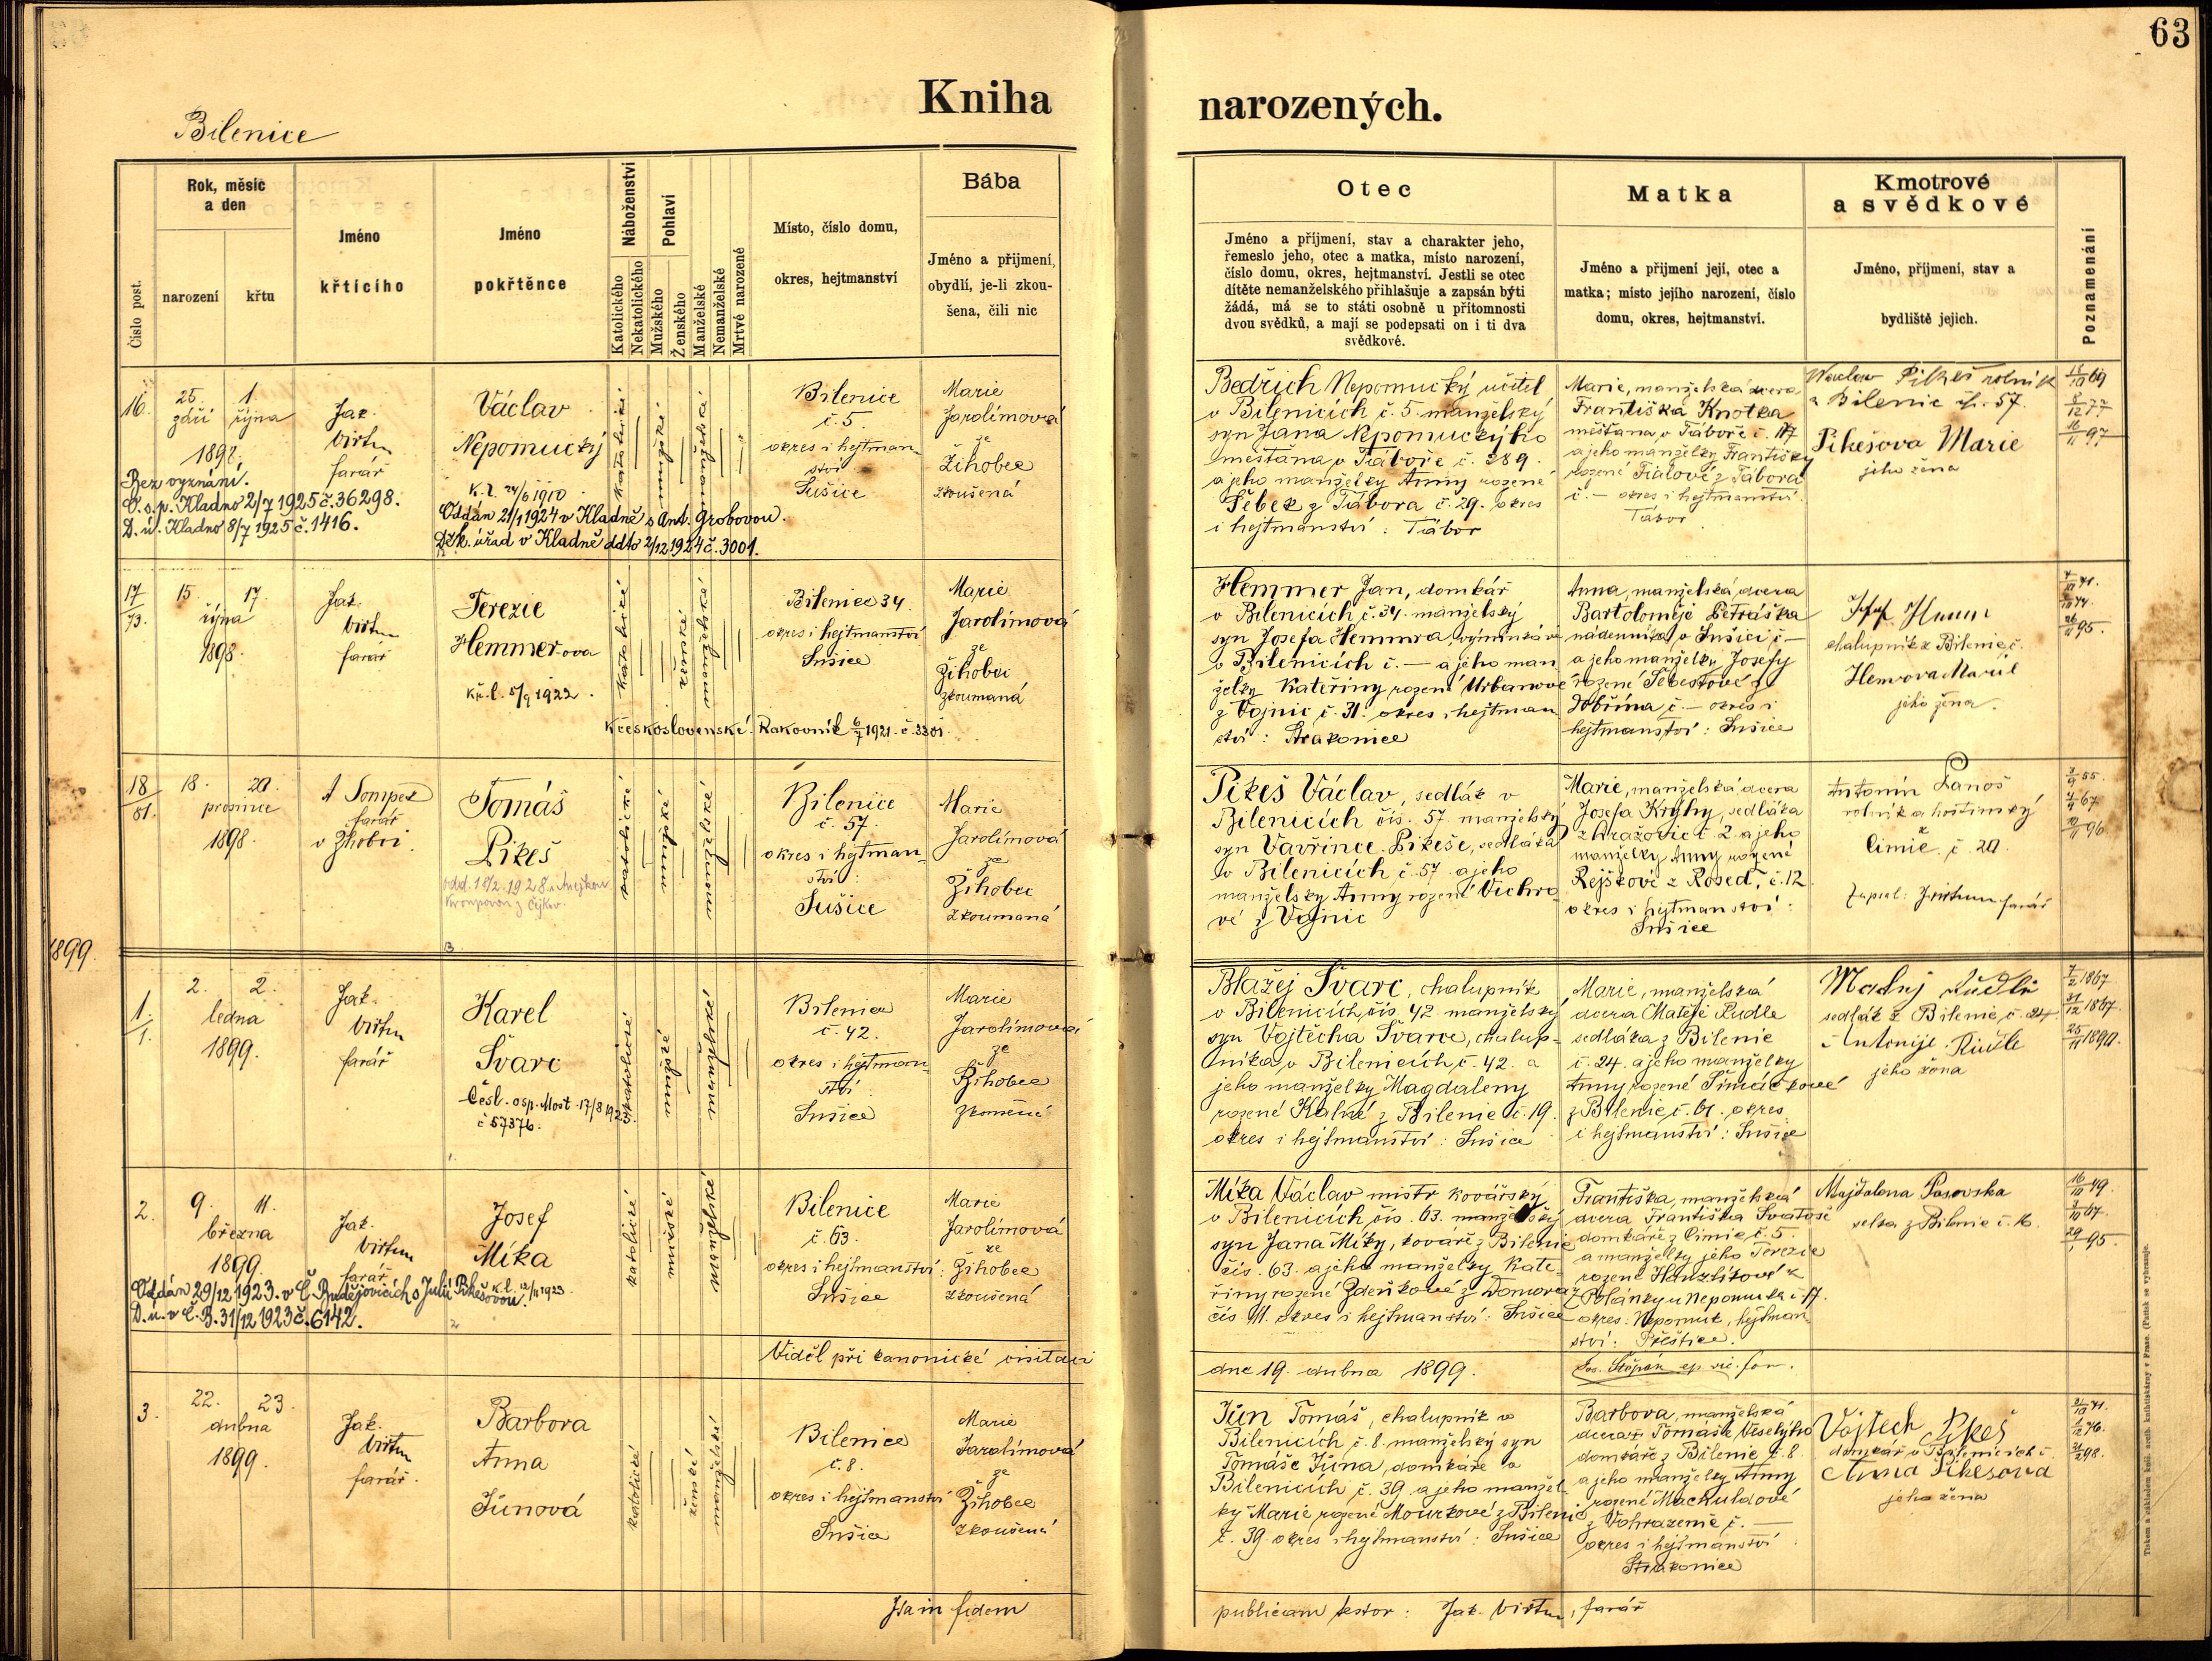 63
Kniha narozených.
Bilenice
Číslo post.
Rok, měsíc a den
narození
křtu
Jméno křtícího
Jméno pokřtěnce
Náboženství
Katolického
Nekatolického
Pohlaví
Mužského
Ženského
Manželské
Nemanželské
Mrtvé narozené
Místo, číslo domu,
okres, hejtmanství
Bába
Jméno a přijmení,
obydlí, je-li zkou-
šena, čili nic
Otec
Jméno a příjmení, stav a charakter jeho,
řemeslo jeho, otec a matka, místo narození,
číslo domu, okres, hejtmanství. Jestli se otec
dítěte nemanželského přihlašuje a zapsán býti
žádá, má se to státi osobně u přítomnosti
dvou svědků, a mají se podepsati on i ti dva
svědkové.
Matka
Jméno a přijmení její, otec a
matka; místo jejího narození, číslo
domu, okres, hejtmanství.
Kmotrové
a svědkové
Jméno, příjmení, stav a
bydliště jejich.
Poznamenání
16.
25. 1.
září října
1898.
Jak.
Virtun
farář
Václav
Nepomucký
K.l. 24/6 1910
Bez vyznání.
O.s.p. Kladno 2/7 1925 č. 36298.
D.ú. Kladno 8/7 1925 č. 1416.
Oddán 21/1 1924 v Kladně s Ant. Grobovou.
Děk. úřad v Kladně ddto 2/12 1924 č. 3001.
katolické
mužské
manželské
Bilenice
č. 5.
okres i hejtman
ství
Sušice
Marie
Jarolímová
ze
Žihobce
zkoušená
Bedřich Nepomucký učitel
v Bilenicích č. 5. manželský
syn Jana Nepomuckýho
měšťana v Táboře č. 289.
a jeho manželky Anny rozené
Šebek z Tábora č. 29. okres
i hejtmanství: Tábor
Marie, manželská dcera
Františka Knotka
měšťana v Táboře č. 117
a jeho manželky Františky
rozené Fialové z Tábora
č. — okres i hejtmanství
Tábor.
Waclaw Pikeš rolník
z Bilenic č. 57.
Pikešova Marie
jeho žena
17
73.
15. 17.
října
1898.
Jak.
Virtun
farář
Terezie
Hemmerova
Kř.l. 5/9 1922.
Kčeskoslovenské. Rakovník 6/7 1921. č. 3301
katolické
ženské
manželské
Bilenice 34.
okres i hejtmanství
Sušice
Marie
Jarolímová
ze
Žihobcí
zkoumaná
Hemmer Jan, domkář
v Bilenicích č. 34. manželský
syn Josefa Hemmra, výminkáře
v Bilenicích č. — a jeho man
želky Kateřiny rozené Urbanové
z Vojnic č. 31. okres i hejtman
ství: Strakonice
Anna, manželská dcera
Bartoloměje Petráška
nádenníka v Sušici č —
a jeho manželky Josefy
rozené Šebestové z
Dobřína č. — okres i
hejtmanství: Sušice
chalupník z Bilenic č.
jeho žena.
18
81.
18. 20.
prosince
1898.
farář
v Žihobci.
Tomáš
Pikeš
katolické
mužské
manželské
Bilenice
č. 57.
okres i hejtman-
ství:
Sušice
Marie
Jarolímová
ze
Žihobce
zkoumaná
Pikeš Václav, sedlák v
Bilenicích čís. 57. manželský
syn Vavřince Pikeše, sedláka
v Bilenicích č. 57. a jeho
manželky Anny rozené Vichro-
vé z Vojnic
Marie, manželská dcera
Josefa Kryhy, sedláka
z Hražovic č. 2. a jeho
manželky Anny rozené
Rejškové z Rosed, č. 12.
okres i hejtmanství:
Sušice
Antonín Lanoš
rolník a hostinský
z
Čimic č. 20.
Zapsal: J. Virtun farář
1899.
1.
1.
2. 2.
ledna
1899.
Jak.
Virtun
farář
Karel
Švarc
Česl. osp. Most 17/8 192
č 57376.
katolické
mužské
manželské
Bilenice
č. 42.
okres i hejtman-
ství
Sušice
Marie
Jarolímová
ze
Žihobce
Blažej Švarc, chalupník
v Bilenicích čís. 42. manželský
syn Vojtěcha Švarce, chalup-
níka v Bilenicích č. 42. a
jeho manželky Magdaleny
rozené Kalné z Bilenic č. 19.
okres i hejtmanství: Sušice
Marie, manželská
dcera Matěje Rudle
sedláka z Bilenic
č. 24. a jeho manželky
Anny rozené Šimáčkové
z Bilenic č. 61. okres
i hejtmanství: Sušice
sedlák z Bilenic č. 24.
jeho žena
2.
9. 11.
března
1899.
Jak.
Virtun
farář
Josef
Míka
K.l.
Oddán 29/12 1923. v Č. Budějovicích s Julií Pikešovou.
D.ú. v Č.B. 31/12 1923 č. 6142.
katolické
mužské
manželské
Bilenice
č. 63.
okres i hejtmanství:
Sušice
Marie
Jarolímová
ze
Žihobce
zkoušená
Míka Václav mistr kovářský
v Bilenicích čís. 63. manželský
syn Jana Míky, kováře z Bilenic
čís. 63. a jeho manželky Kate-
řiny rozené Zdeňkové z Domoraz
čís 11. okres i hejtmanství: Sušice
Františka, manželská
dcera Františka Svatoše
domkáře z Čimic č. 5.
a manželky jeho Terezie
rozené Hanzlíkové z
Polánky u Nepomuka č. 17.
okres: Nepomuk, hejtman-
ství: Přeštice.
Majdalena Pasovska
z Bilenic č. 16.
Viděl při kanonické visitaci
dne 19. dubna 1899.
Jos. Štěpán ep. vic. for.
3.
22. 23.
dubna
1899.
Jak.
Virtun
farář.
Barbora
Anna
Jůnová
katolické
ženské
manželské
Bilenice
č. 8.
okres i hejtmanství
Sušice
Marie
Jarolímová
ze
Žihobce
zkoušená
Jůn Tomáš, chalupník v
Bilenicích č. 8. manželský syn
Tomáše Jůna, domkáře v
Bilenicích č. 39. a jeho manžel
ky Marie rozené Mourkové z Bilenic
č. 39. okres i hejtmanství: Sušice
Barbora, manželská
dcera Tomáše Veselýho
domkáře z Bilenic č. 8.
a jeho manželky Anny
rozené Machuldové
z Vohrazenic č. —
okres i hejtmanství
Strakonice
Vojtech Pikeš
domkář v Bilenicích č.
Anna Pikesova
jeho žena
Ita in fidem
publicam testor: Jak. Virtun, farář